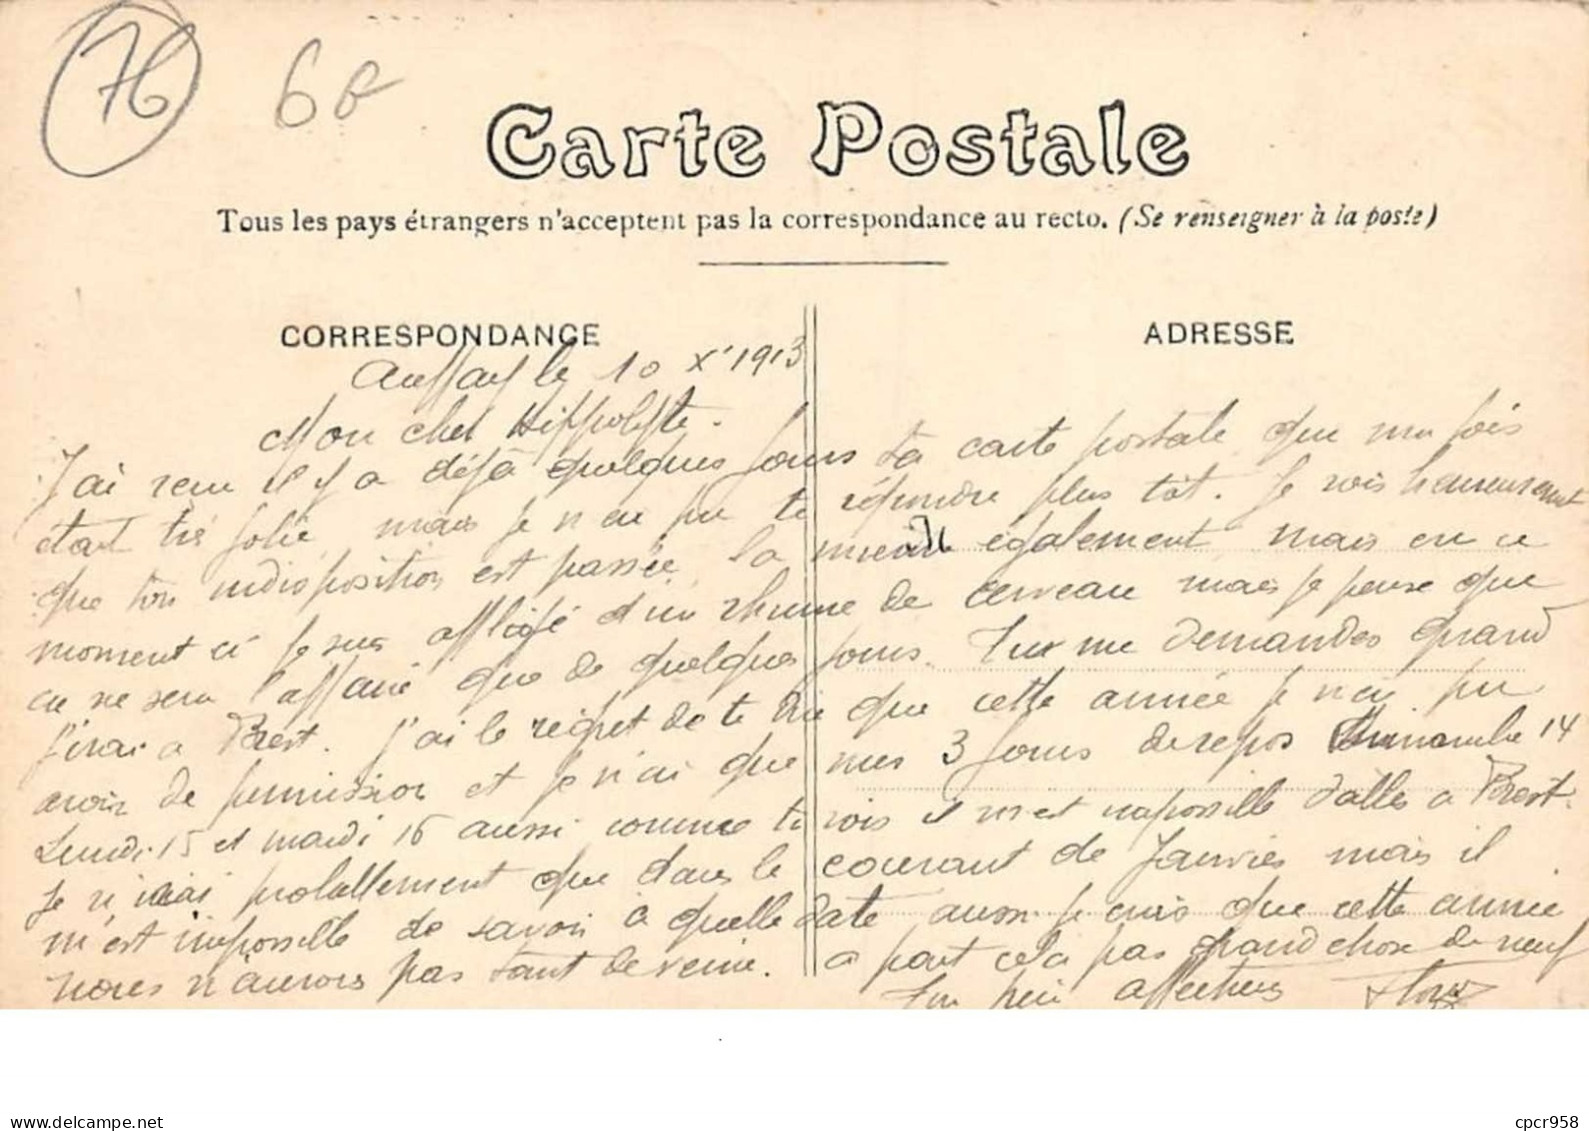 76
6
Carte Postale
Tous les pays étrangers n'acceptent pas la correspondance au recto. (Se renseigner à la poste)
CORRESPONDANCE
ADRESSE
Auffay le 10 Xr 1913
Mon cher Hippolyte.
J'ai reçu il y a déjà quelques jours ta carte postale que ma fois
était très jolie mais je n'ai pu te répondre plus tôt. Je vois heureusement
que ton indisposition est passée, la mienne également mais en ce
moment ci je suis affligé d'un rhume de cerveau mais je pense que
ce ne sera l'affaire que de quelques jours. Tu me demandes quand
j'irai a Brest. J'ai le regret de te dire que cette année je n'ai pu
avoir de permission et je n'ai que mes 3 jours de repos Dimanche 14
Lundi 15 et mardi 16 aussi comme tu vois il m'est impossible d'aller a Brest.
Je n'irai probablement que dans le courant de Janvier mais il
m'est impossible de savoir à quelle date aussi je crois que cette année
nous n'aurons pas tant de veine. a part cela pas grand chose de neuf
affectueux
www.delcampe.net
cpcr958